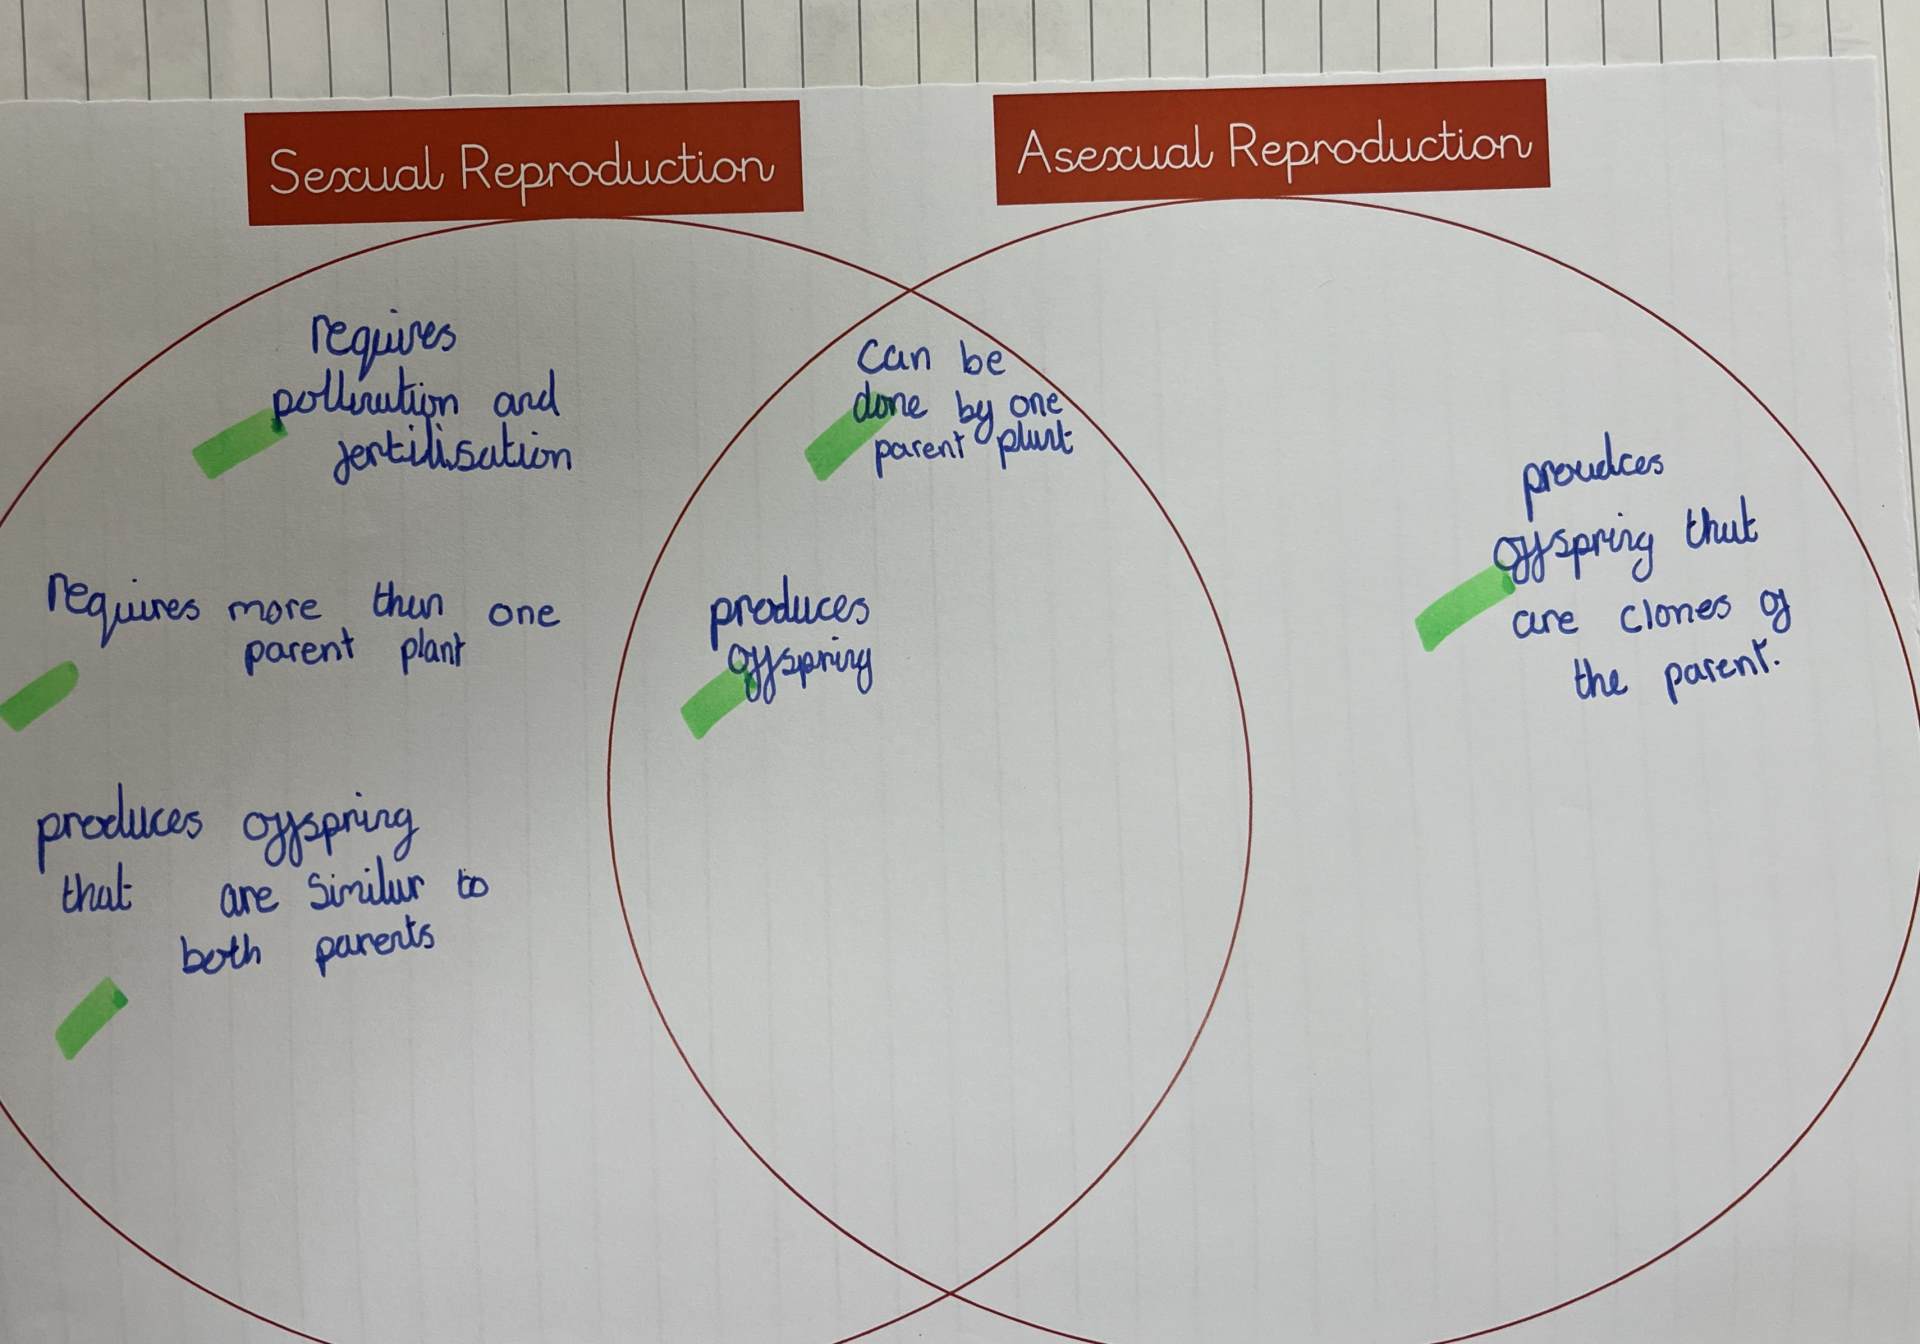 Sexual Reproduction
Asexual Reproduction
requires
pollination and
fertilisation
requires more than one
parent plant
produces offspring
that are similar to
both parents
can be
done by one
parent plant
produces
offspring
proudces
offspring that
are clones of
the parent.